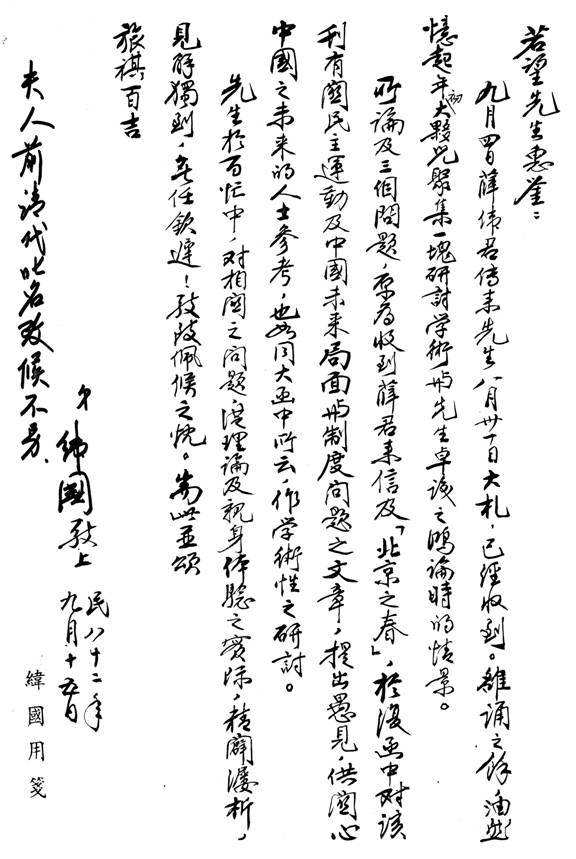 若望先生惠鉴：
九月四日薛伟君傳来先生八月卅一日大札，已經收到。雒诵之餘，油然
憶起年初大夥兒聚集一塊研討学術與先生卓識之鴻論時的情景。
所論及三個問題，原為收到薛君来信及「北京之春」，於復函中对該
刊有關民主運動及中國未来局面與制度问题之文章，提出愚見，供關心
中國之未来的人士參考，也如同大函中所云，作学術性之研討。
先生於百忙中，对相關之问题，從理論及親身体驗之實际，精闢瀝析，
見解獨到，無任欽遲！致敬佩候之忱。耑此並頌
旅祺百吉
夫人前請代叱名致候不另、
弟 緯國敬上
民八十二年
九月十五日
緯國用箋